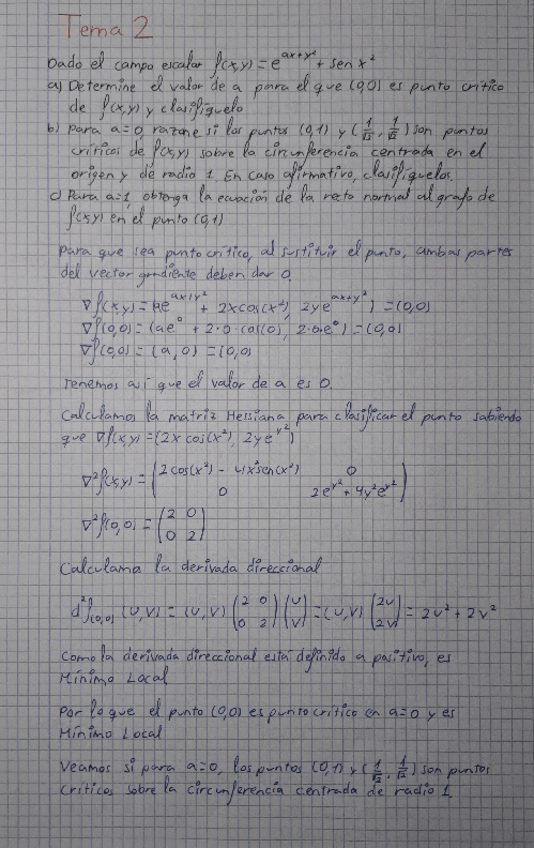 Tema 2
Dado el campo escalar f(x,y) = e^(ax+y²) + sen x²
a) Determine el valor de a para el que (0,0) es punto crítico
de f(x,y) y clasifíquelo
b) Para a=0, razone si los puntos (0,1) y (1/√2, 1/√2) son puntos
críticos de f(x,y) sobre la circunferencia centrada en el
origen y de radio 1. En caso afirmativo, clasifíquelos.
c) Para a=1, obtenga la ecuación de la recta normal al grafo de
f(x,y) en el punto (0,1)
Para que sea punto crítico, al sustituir el punto, ambas partes
del vector gradiente deben dar 0.
∇f(x,y) = (ae^(ax+y²) + 2xcos(x²), 2ye^(ax+y²)) = (0,0)
∇f(0,0) = (ae⁰ + 2·0·cos(0), 2·0·e⁰) = (0,0)
∇f(0,0) = (a,0) = (0,0)
Tenemos así que el valor de a es 0.
Calculamos la matriz Hessiana para clasificar el punto sabiendo
que ∇f(x,y) = (2x cos(x²), 2ye^(y²))
∇²f(x,y) = (2cos(x²) - 4x²sen(x²) 0
0 2e^(y²) + 4y²e^(y²))
∇²f(0,0) = (2 0
0 2)
Calculamo la derivada direccional
d²f(0,0) (u,v) = (u,v) (2 0 / 0 2) (u / v) = (u,v) (2u / 2v) = 2u² + 2v²
Como la derivada direccional está definido a positivo, es
Mínimo Local
Por lo que el punto (0,0) es punto crítico en a=0 y es
Mínimo Local
Veamos si para a=0, los puntos (0,1) y (1/√2, 1/√2) son puntos
críticos sobre la circunferencia centrada de radio 1.